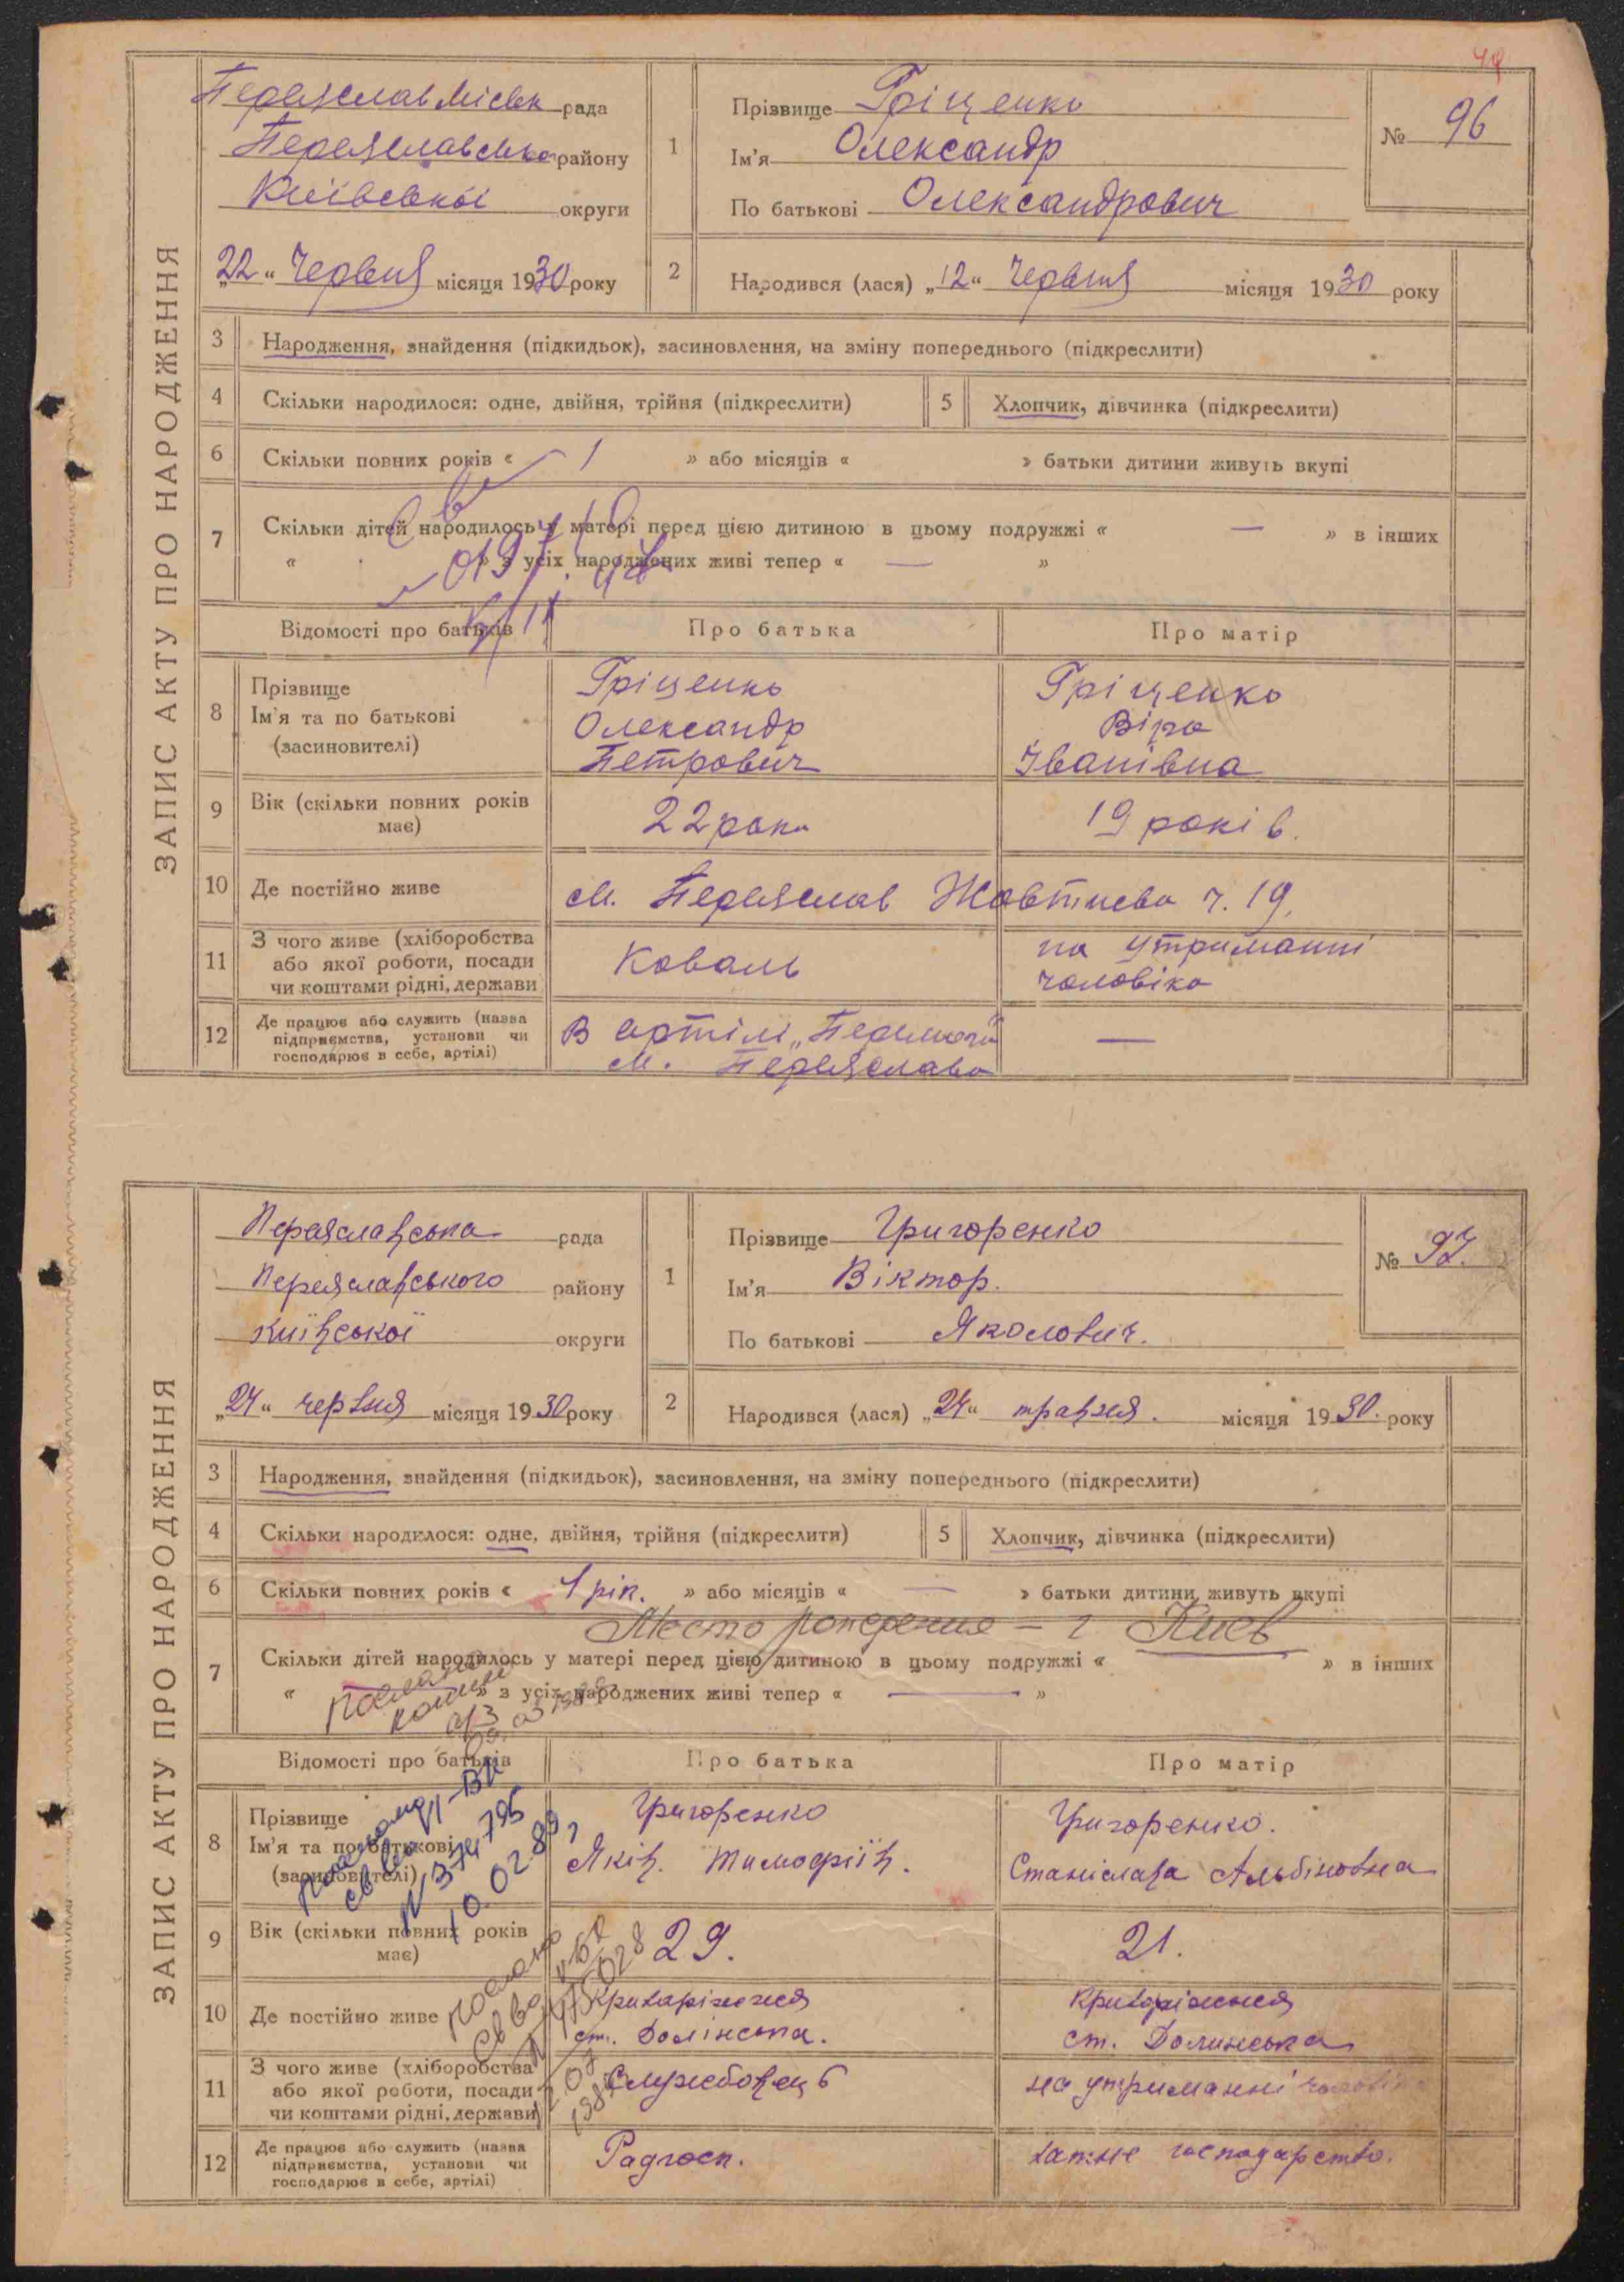 49
ЗАПИС АКТУ ПРО НАРОДЖЕННЯ
ПереяславМіськ рада
Переяславсько району
Київської округи
„22“ Червня місяця 1930 року
1
Прізвище Гріценко
Ім'я Олександр
По батькові Олександрович
№ 96
2
Народився (лася) „12“ Червня місяця 1930 року
3 Народження, знайдення (підкидьок), засиновлення, на зміну попереднього (підкреслити)
4 Скільки народилося: одне, двійня, трійня (підкреслити)
5 Хлопчик, дівчинка (підкреслити)
6 Скільки повних років « 1 » або місяців « » батьки дитини живуть вкупі
7 Скільки дітей народилось у матері перед цією дитиною в цьому подружжі « — » в інших
« » з усіх народжених живі тепер « — »
Відомості про батьків
Про батька
Про матір
8 Прізвище
Ім'я та по батькові
(засиновителі)
Гріценко
Олександр
Петрович
Гріценко
Віра
Іванівна
9 Вік (скільки повних років
має)
22 роки
19 років.
10 Де постійно живе
м. Переяслав Жовтнева ч. 19,
11 З чого живе (хліборобства
або якої роботи, посади
чи коштами рідні, держави
Коваль
на утриманні
чоловіка
12 Де працює або служить (назва
підприємства, установи чи
господарює в себе, артілі)
В артілі
м. Переяслава
—
ЗАПИС АКТУ ПРО НАРОДЖЕННЯ
Переяславська рада
Переяславського району
Київської округи
„24“ червня місяця 1930 року
1
Прізвище Григоренко
Ім'я Віктор.
По батькові Яколович.
№ 97.
2
Народився (лася) „24“ травня. місяця 1930. року
3 Народження, знайдення (підкидьок), засиновлення, на зміну попереднього (підкреслити)
4 Скільки народилося: одне, двійня, трійня (підкреслити)
5 Хлопчик, дівчинка (підкреслити)
6 Скільки повних років « 1 рік. » або місяців « — » батьки дитини живуть вкупі
Место рождения — г Киев
7 Скільки дітей народилось у матері перед цією дитиною в цьому подружжі « » в інших
« » з усіх народжених живі тепер « — »
Відомості про батьків
Про батька
Про матір
8 Прізвище
Ім'я та по батькові
(засиновителі)
Григоренко
Яків. Тимофіїв.
Григоренко.
Станіслава Альбіновна
№ 374795
10.02.89
9 Вік (скільки повних років
має)
29.
21.
10 Де постійно живе
Криворіжчя
ст. Долінська.
Криворіжчя
ст. Долинська
11 З чого живе (хліборобства
або якої роботи, посади
чи коштами рідні, держави)
Службовець
на утриманні чоловіка
12 Де працює або служить (назва
підприємства, установи чи
господарює в себе, артілі)
Радгосп.
хатнє господарство.